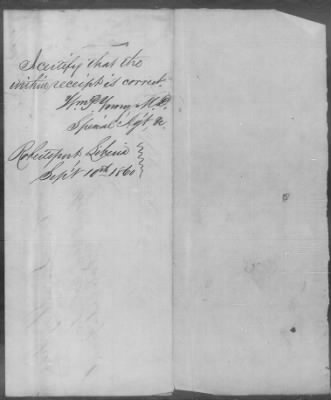 I certify that the
within receipt is correct.
Wm P. Young M.D.
Special Ag't, &c.
Robertsport Liberia
Sept 10th 1860